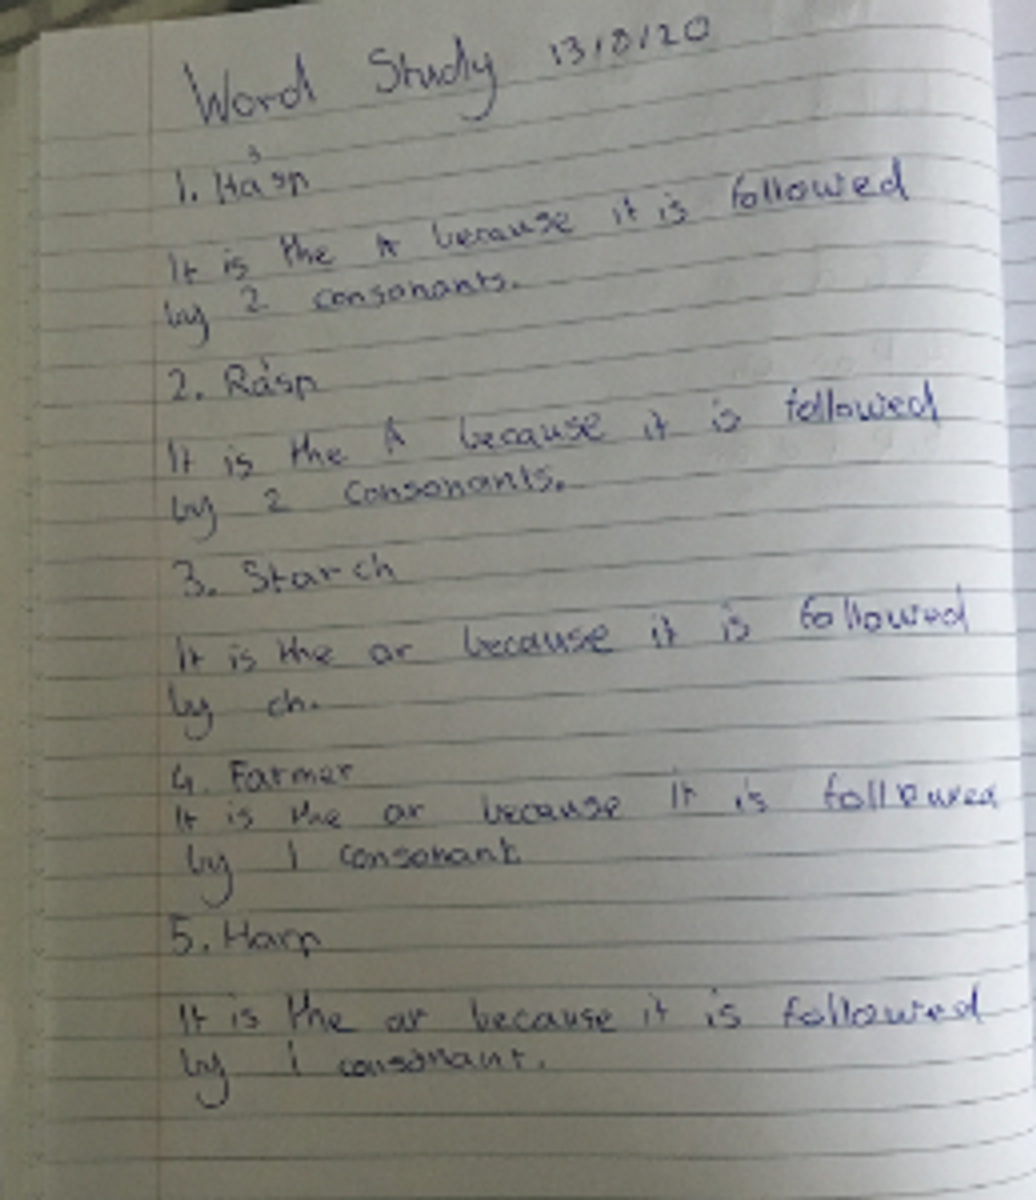 Word Study 13/8/20
3
1. Hasp
It is the A because it is followed
by 2 consonants.
2. Rasp
It is the A because it is followed
by 2 consonants.
3. Starch
It is the ar because it is followed
by ch.
4. Farmer
It is the ar because it is followed
by 1 consonant
5. Harp
It is the ar because it is followed
by 1 consonant.